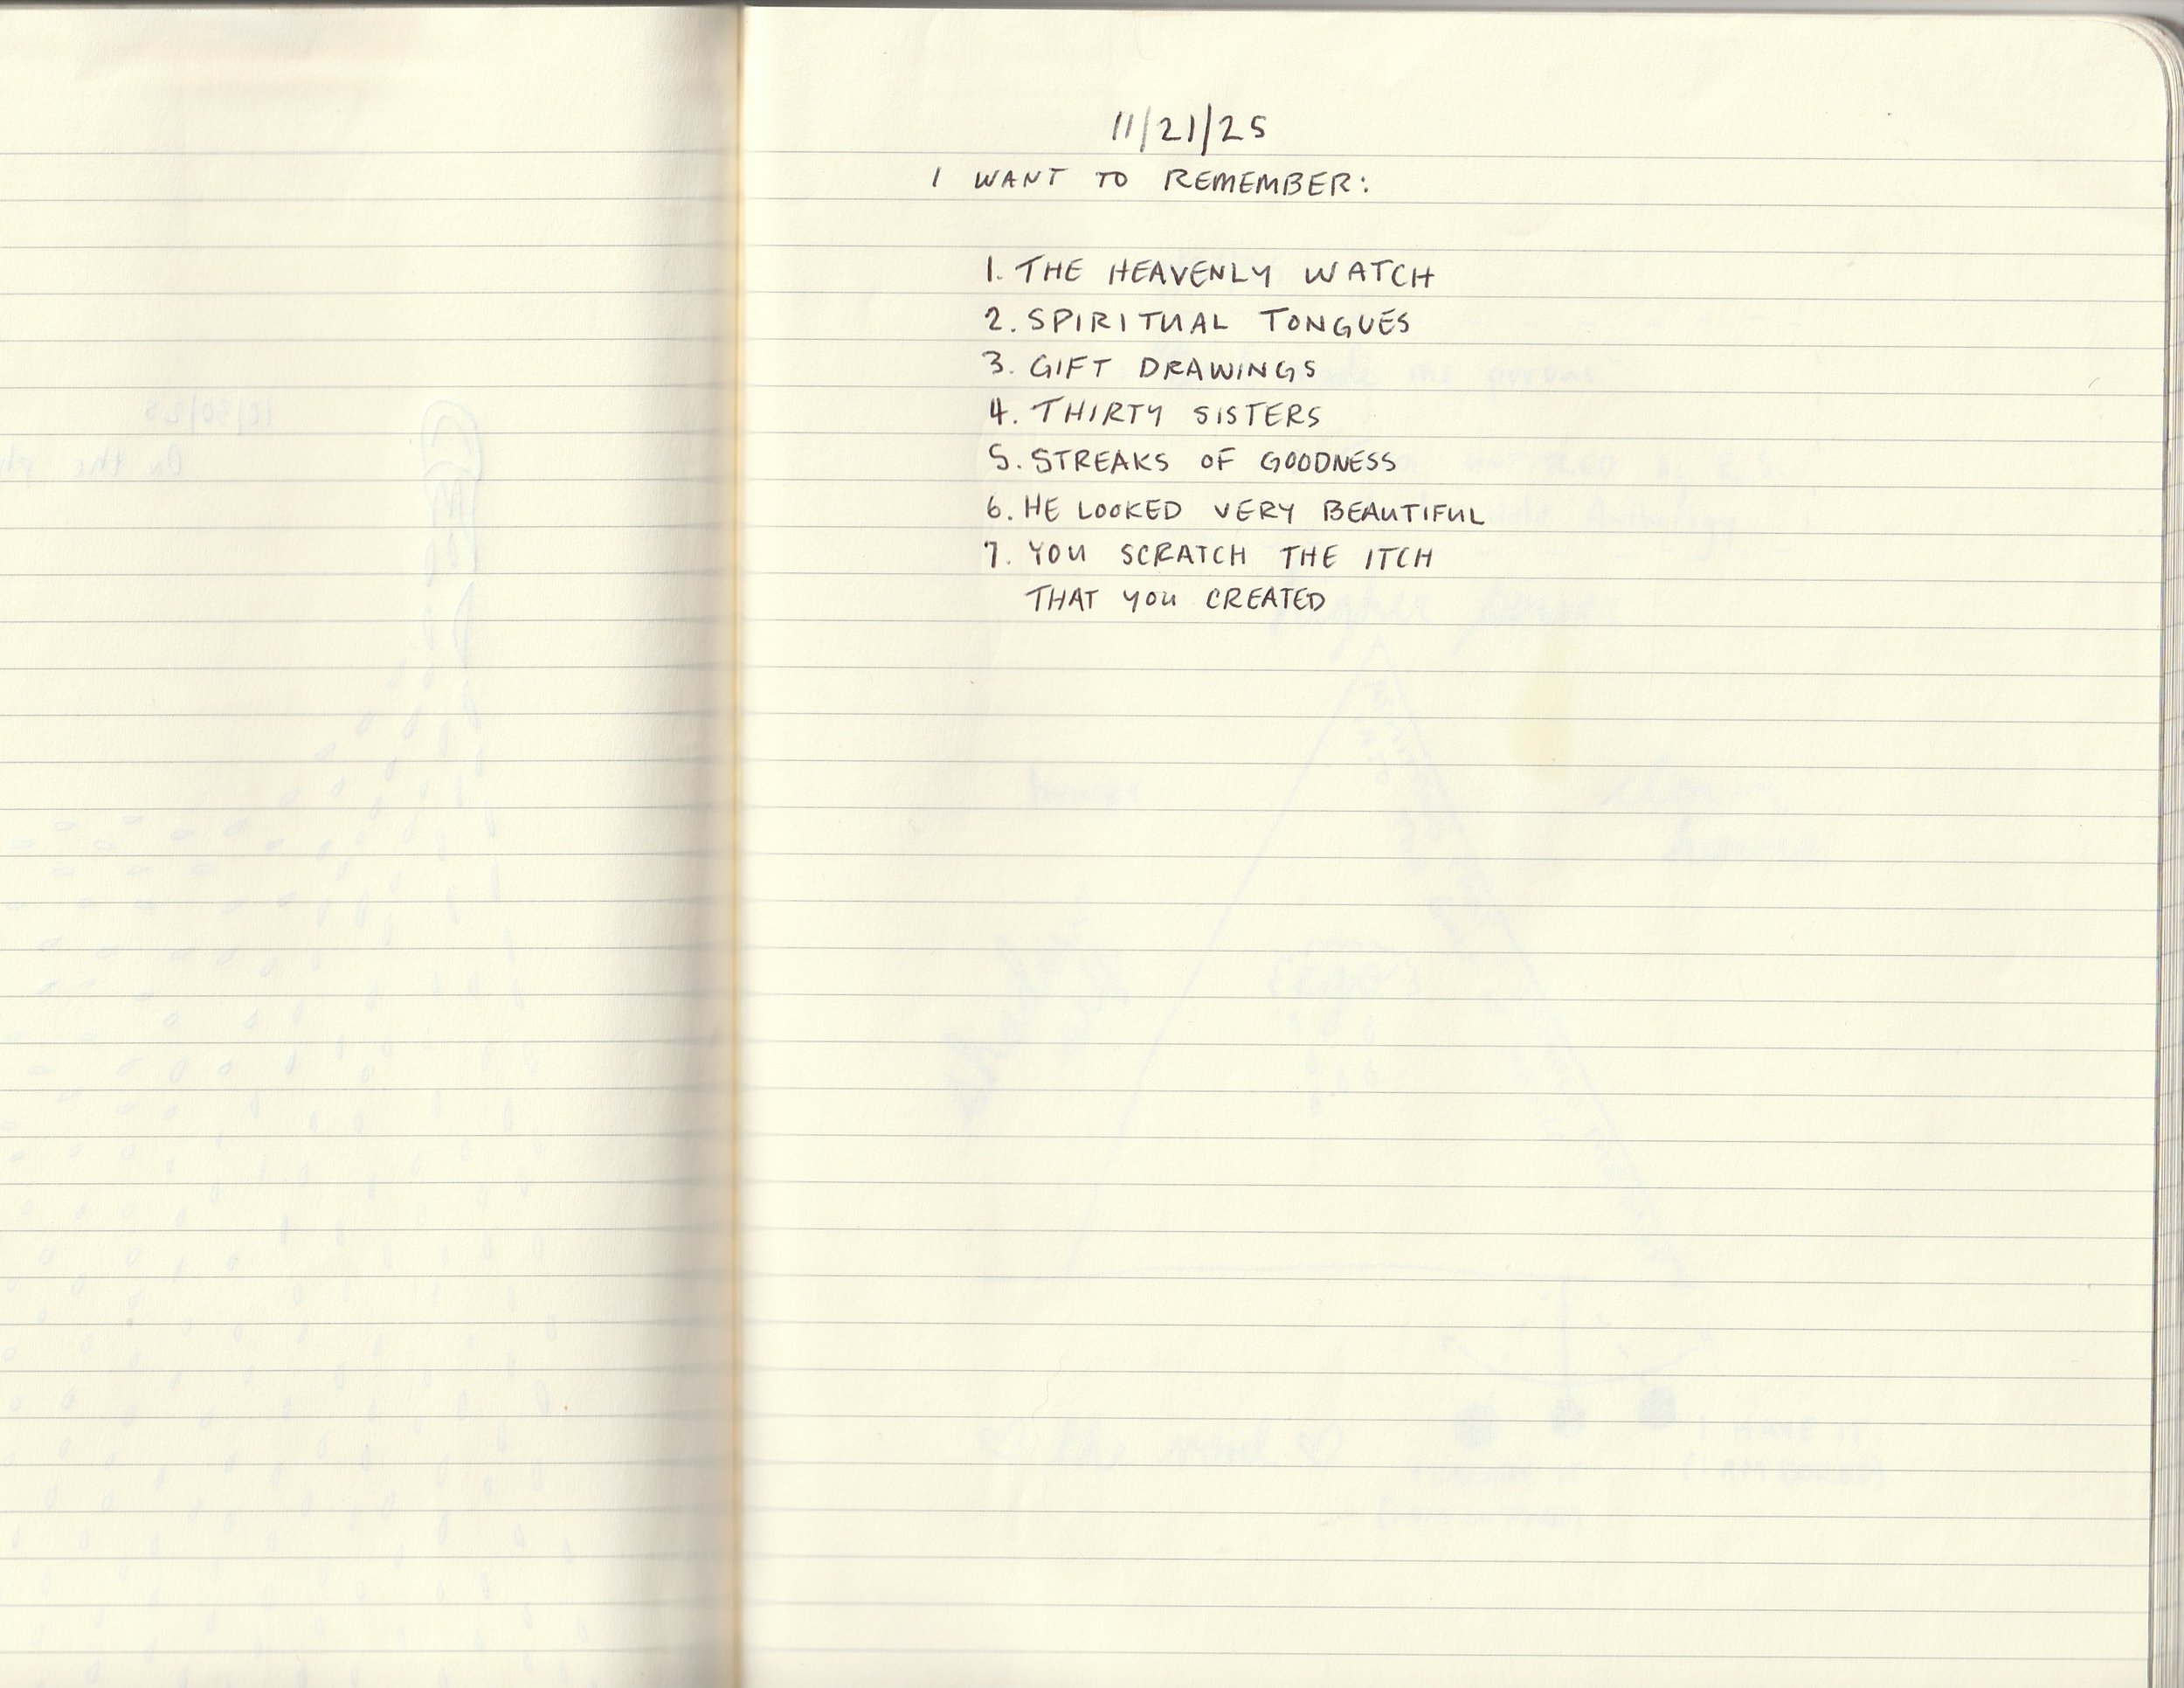 11/21/25
I WANT TO REMEMBER:
1. THE HEAVENLY WATCH
2. SPIRITUAL TONGUES
3. GIFT DRAWINGS
4. THIRTY SISTERS
5. STREAKS OF GOODNESS
6. HE LOOKED VERY BEAUTIFUL
7. YOU SCRATCH THE ITCH
THAT YOU CREATED